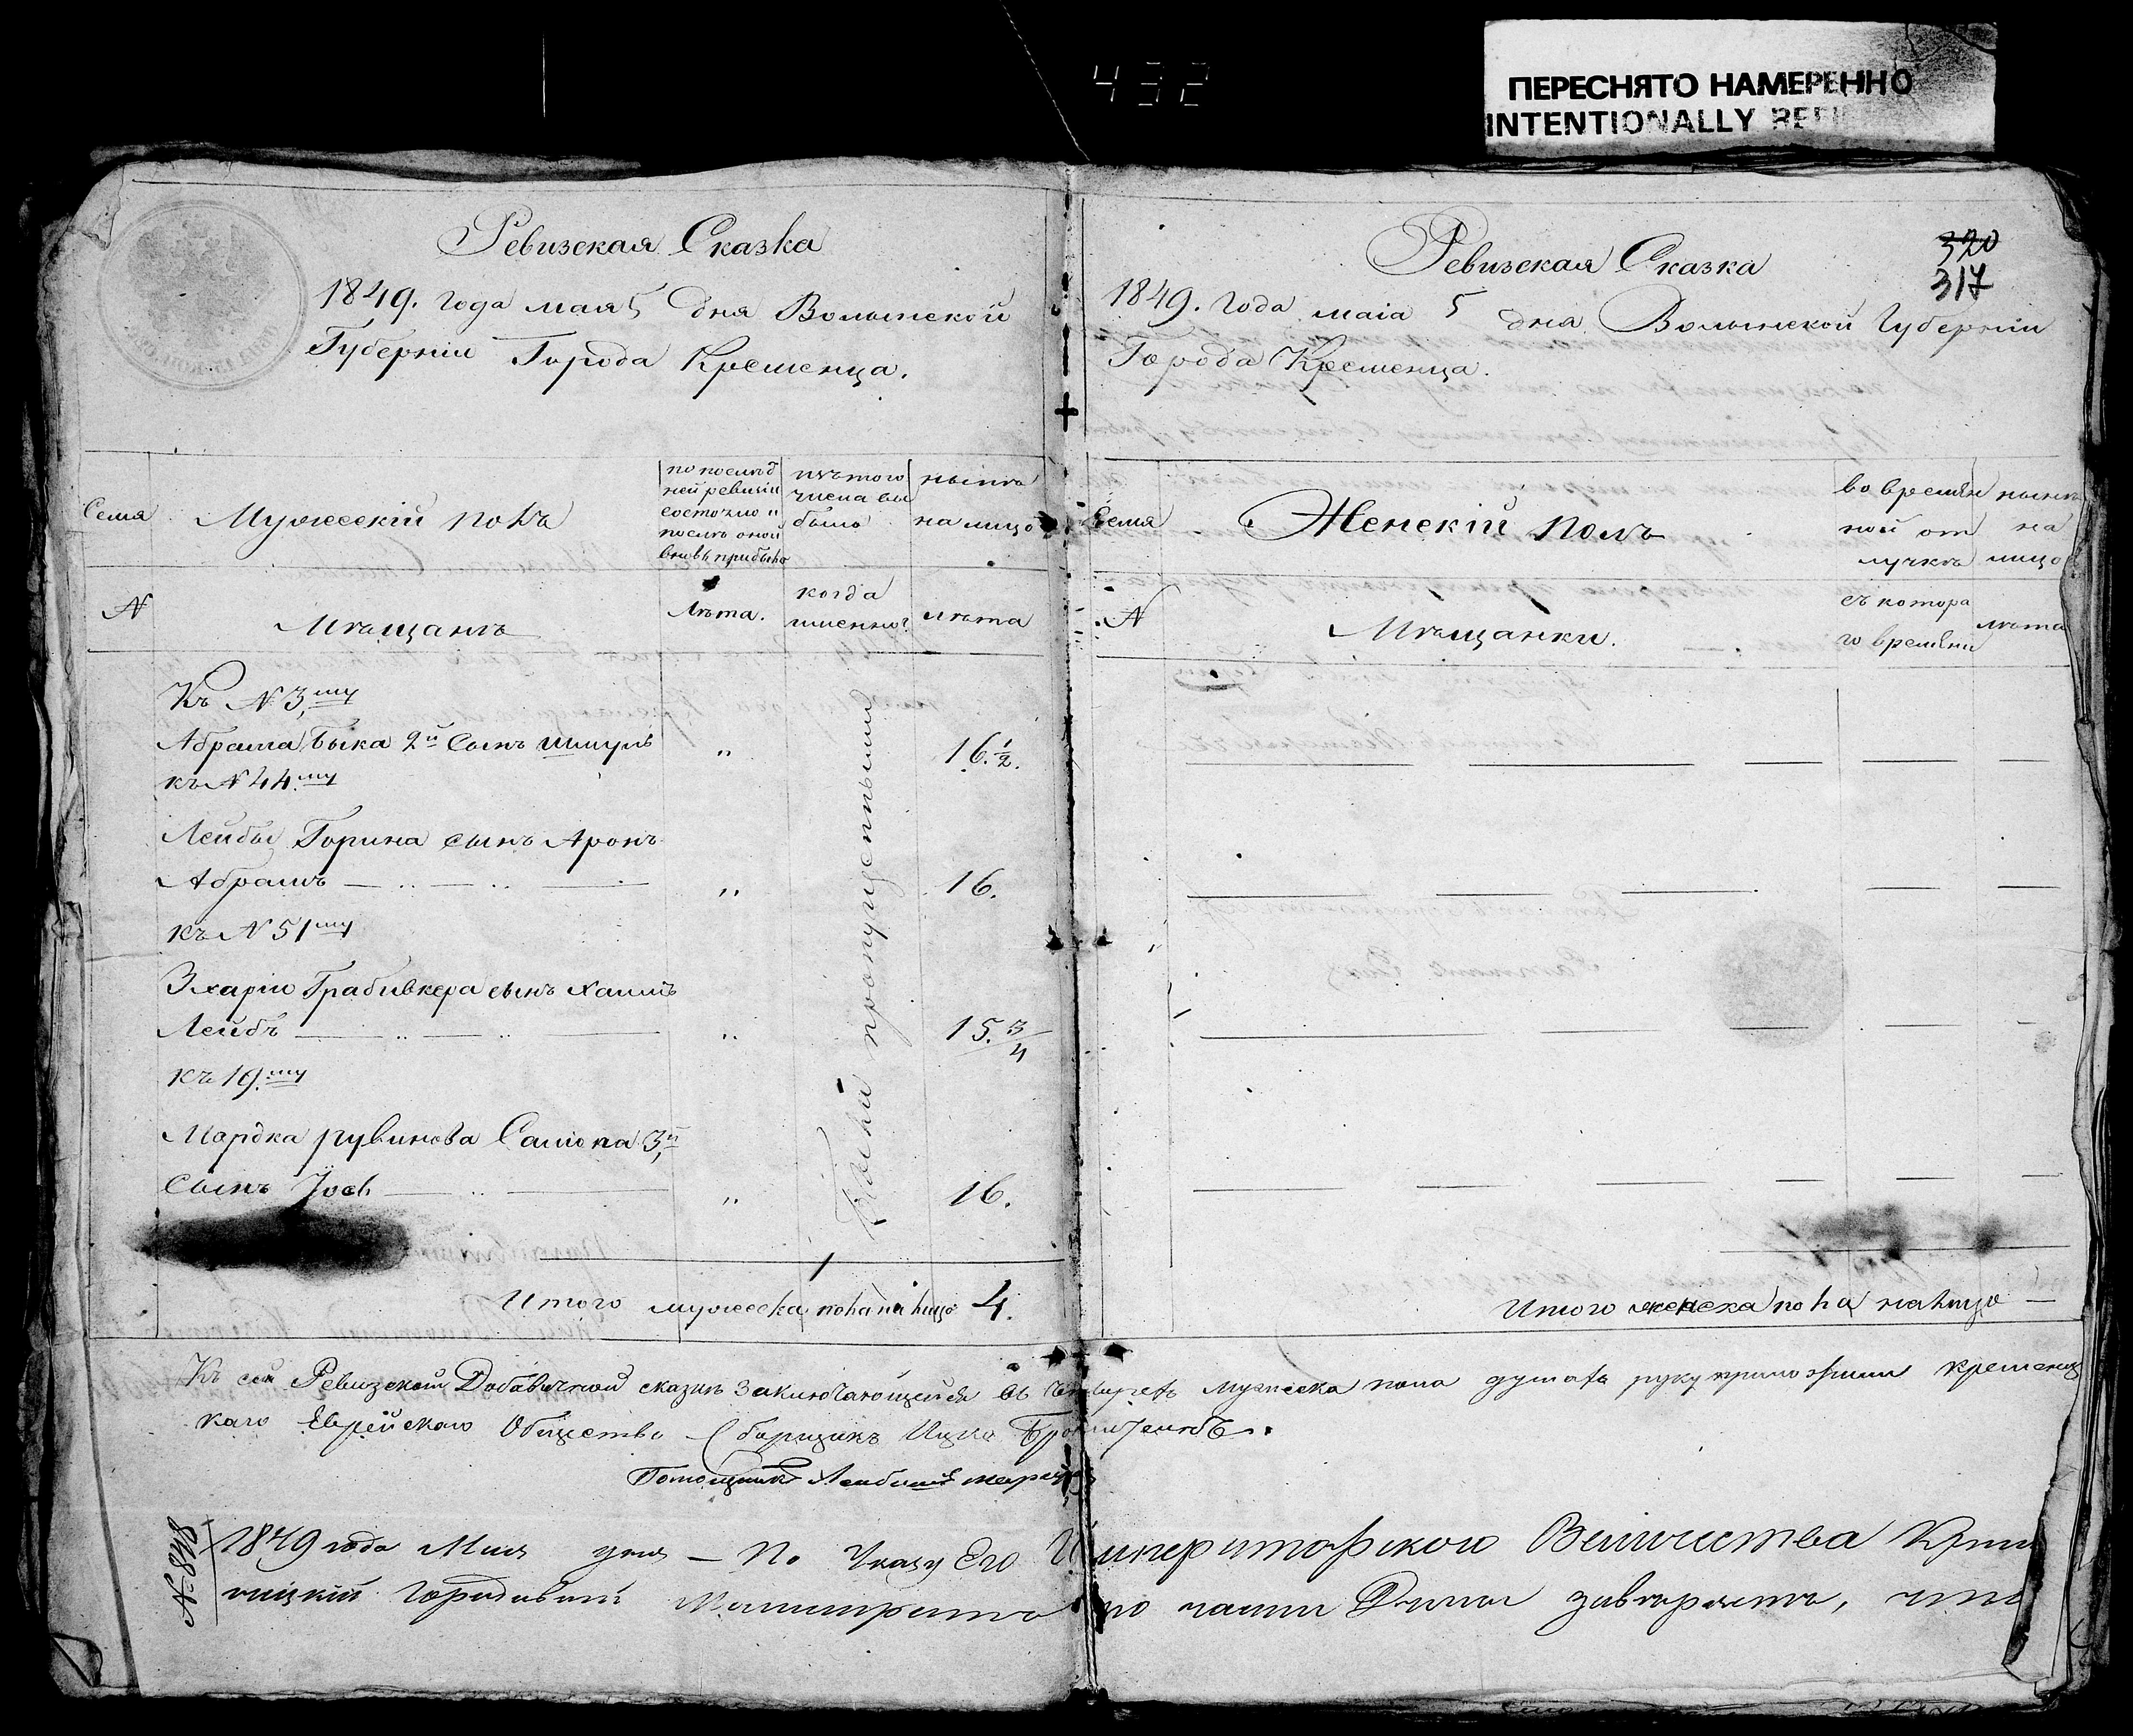 432
ПЕРЕСНЯТО НАМЕРЕННО
INTENTIONALLY REFI
Ревизская Сказка
1849. года мая 5 дня Волынской
Губерніи Города Кременца.
Семя
Мужескій полъ
по послѣд
ней ревизіи
состояло и
послѣ оной
вновь прибыло
изъ того
числа вы
было
нынѣ
на лицо
N
Мѣщанъ
Лѣта.
когда
именно?
лѣта
Къ N 3,му
Абрама Быка 2й Сынъ Шмуль " 16.½.
къ N 44.му
Лейбы Горина сынъ Аронъ
Абрамъ " 16.
къ N 51му
Зхаріи Грабивкера сынъ Хаимъ
Лейбъ " 15.¾
къ 19.му
Мордка рувинова Самона 3,й
Сынъ Іось " 16.
пропущенными
Итого мужеска пола на лицо 4.
320
317
Ревизская Сказка
1849. года маіа 5 дня Волынской Губерніи
Города Кременца.
Семя
Женскій полъ
во времян
ной от
лучкѣ
нынѣ
на
лицо
N
Мѣщанки.
съ котора
го времяни
лѣта
Итого женска пола на лицо —
Къ сей Ревизской Добавочной сказкѣ заключающейся въ четырехъ мужеска пола душахъ руку приложили кременец
каго Еврейского Общества Сборщикъ Ицко
N 848
1849 года Мая дня — По Указу Его Императорского Величества Креме
нецкій Городовый Магистратъ по части Думы завѣряетъ, что